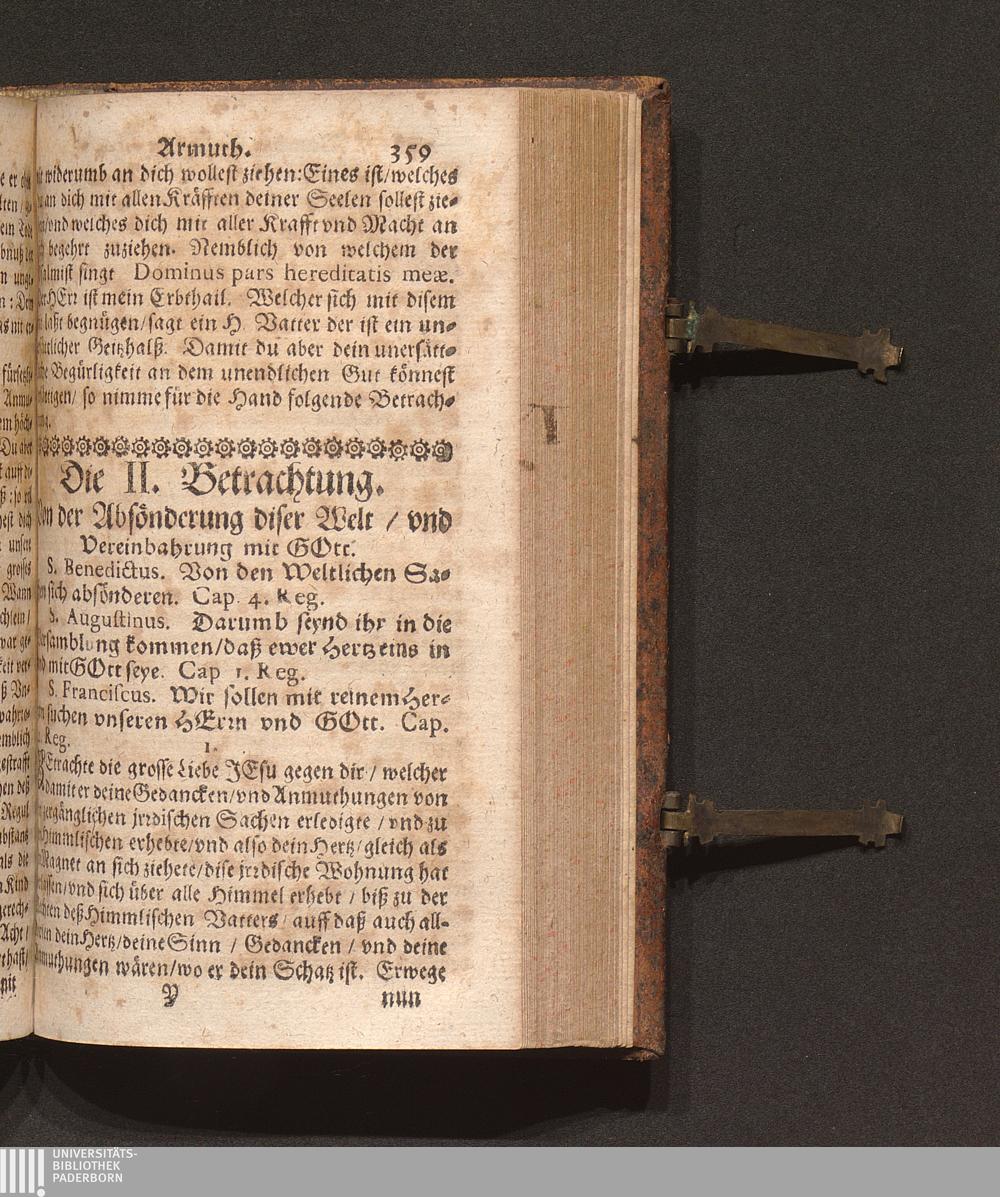 Armuth. 359
widerumb an dich wollest ziehen: Eines ist/welches
an dich mit allen Kräfften deiner Seelen sollest zie-
vnd welches dich mit aller Krafft vnd Macht an
begehrt zuziehen. Nemblich von welchem der
singt Dominus pars hereditatis meæ.
HErr ist mein Erbthail. Welcher sich mit disem
laßt begnügen/sagt ein H. Vatter der ist ein un-
Geitzhalß. Damit du aber dein unersätt-
Begürligkeit an dem unendlichen Gut könnest
so nimme für die Hand folgende Betrach-
Die II. Betrachtung.
Von der Absönderung diser Welt / vnd
Vereinbahrung mit GOtt.
S. Benedictus. Von den Weltlichen Sa-
sich absönderen. Cap. 4. Reg.
S. Augustinus. Darumb seynd ihr in die
Versamblung kommen/daß ewer Hertz eins in
mit GOtt seye. Cap 1. Reg.
S. Franciscus. Wir sollen mit reinem Her-
suchen vnseren HErrn vnd GOtt. Cap.
Reg.
1.
BEtrachte die grosse Liebe JEsu gegen dir / welcher
damit er deine Gedancken/vnd Anmuthungen von
zergänglichen jrrdischen Sachen erledigte / vnd zu
Himmlischen erhebte/vnd also dein Hertz/gleich als
Magnet an sich ziehete/dise jrrdische Wohnung hat
vnd sich über alle Himmel erhebt / biß zu der
deß Himmlischen Vatters auff daß auch all-
dein Hertz/deine Sinn / Gedancken / vnd deine
Anmuthungen wären/wo er dein Schatz ist. Erwege
nun
UNIVERSITÄTS-
BIBLIOTHEK
PADERBORN